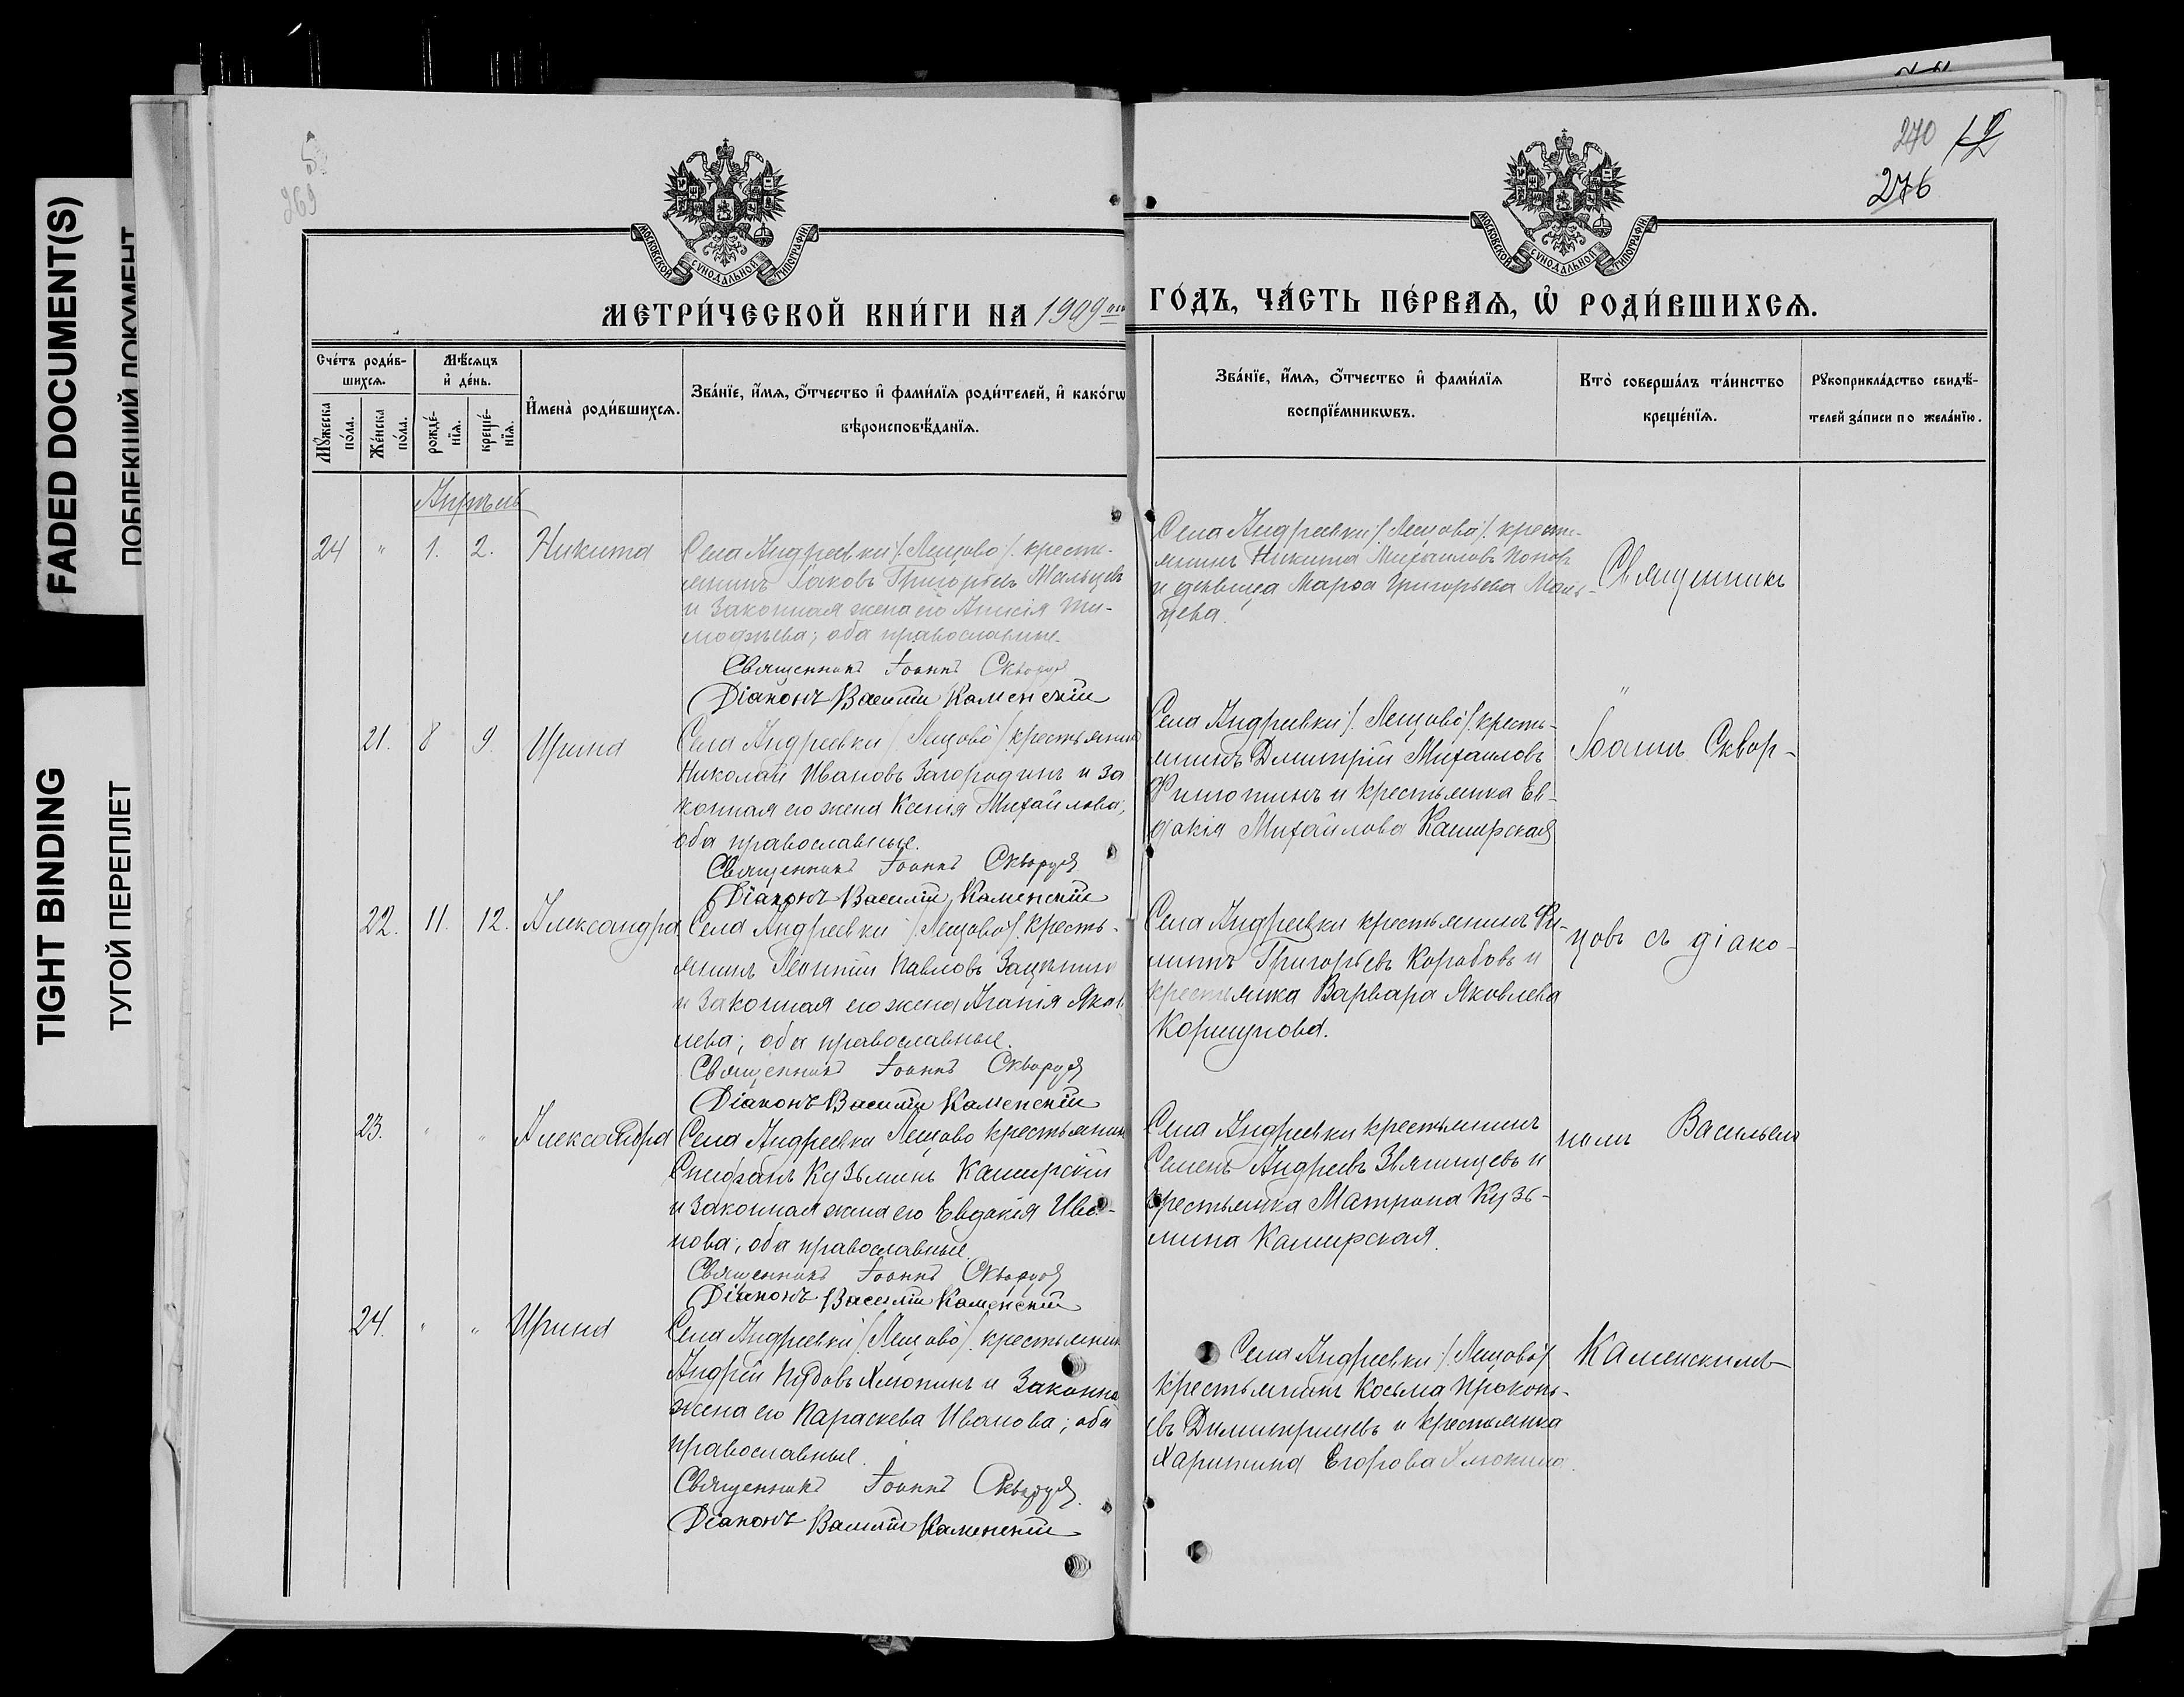 FADED DOCUMENT(S)
ПОБЛЕКШИЙ ДОКУМЕНТ
TIGHT BINDING
ТУГОЙ ПЕРЕПЛЕТ
5
269
270 12
276
МОСКОВСКОЙ СѴНОДАЛЬНОЙ ТИПОГРАФІИ
МОСКОВСКОЙ СѴНОДАЛЬНОЙ ТИПОГРАФІИ
МЕТРИ́ЧЕСКОЙ КНИ́ГИ НА 1909 ГО́ДЪ, ЧА́СТЬ ПЕ́РВАѦ, Ѡ҆ РОДИ́ВШИХСѦ.
Сче́тъ роди́в-
шихсѧ.
Мꙋ́жеска по́ла.
Же́нска по́ла.
Мѣ́сѧцъ
и҆ де́нь.
рожде́-
нїѧ.
креще́-
нїѧ.
И҆мена̀ роди́вшихсѧ.
Зва́нїе, и҆́мѧ, ѻ҆́тчество и҆ фами́лїѧ роди́телей, и҆ како́гѡ
вѣроисповѣ́данїѧ.
Зва́нїе, и҆́мѧ, ѻ҆́тчество и҆ фами́лїѧ
воспрїе́мникѡвъ.
Кто̀ соверша́лъ та́инство
креще́нїѧ.
Рꙋкоприкла́дство свидѣ́-
телей за́писи по жела́нїю.
Апрѣль
24 " 1. 2. Никита
Села Андреевки /. Лещово /. кресть-
янинъ Іаковъ Григорьевъ Мальцевъ
и законная жена его Анисія Ти-
мофѣева; оба православные.
Священникъ Іоаннъ Скворцов
Діаконъ Василій Каменскій
Села Андреевки /. Лещово /. кресть-
янинъ Никита Михаиловъ Попов
и дѣвица Марѳа Григорьева Маль-
цева.
Священникъ
21. 8 9. Ирина
Села Андреевки /. Лещово /. крестьянинъ
Николай Ивановъ Загородинъ и за
конная его жена Ксенія Михайлова,
оба православные.
Священникъ Іоаннъ Скворцов
Діаконъ Василій Каменскій
Села Андреевки /. Лещово /. кресть-
янинъ Дмитрій Михаиловъ
Филотинъ и крестьянка Ев-
докія Михайлова Каширская
"
Іоаннъ Сквор-
22. 11. 12. Александра
Села Андреевки /. Лещово /. кресть-
янинъ Леонтій Павловъ
и законная его жена Агапія Яков
лева; оба православные.
Священникъ Іоаннъ Скворцов
Діаконъ Василій Каменскій
Села Андреевки крестьянинъ Фи-
липпъ Григорьевъ Коробовъ и
крестьянка Варвара Яковлева
Коршунова.
цовъ съ діако-
23. " " Александра
Села Андреевки Лещово крестьянинъ
Спифанъ Кузьминъ Каширскій
и законная жена его Евдокія Ива-
нова; оба православные.
Священникъ Іоаннъ Скворцов
Діаконъ Василій Каменскій
Села Андреевки крестьянинъ
Семенъ Андреевъ Звягинцевъ и
крестьянка Матрона Кузь-
мина Каширская.
номъ Васильемъ
24. " " Ирина
Села Андреевки /. Лещово /. крестьянинъ
Андрей Пудовъ Хлюпинъ и законная
жена его Параскева Иванова; оба
православные.
Священникъ Іоаннъ Скворцов.
Діаконъ Василій Каменскій
Села Андреевки /. Лещово /.
крестьянинъ Косьма Прокопь-
евъ Димитріевъ и крестьянка
Харитина Егорова Хлюпина.
Каменскимъ